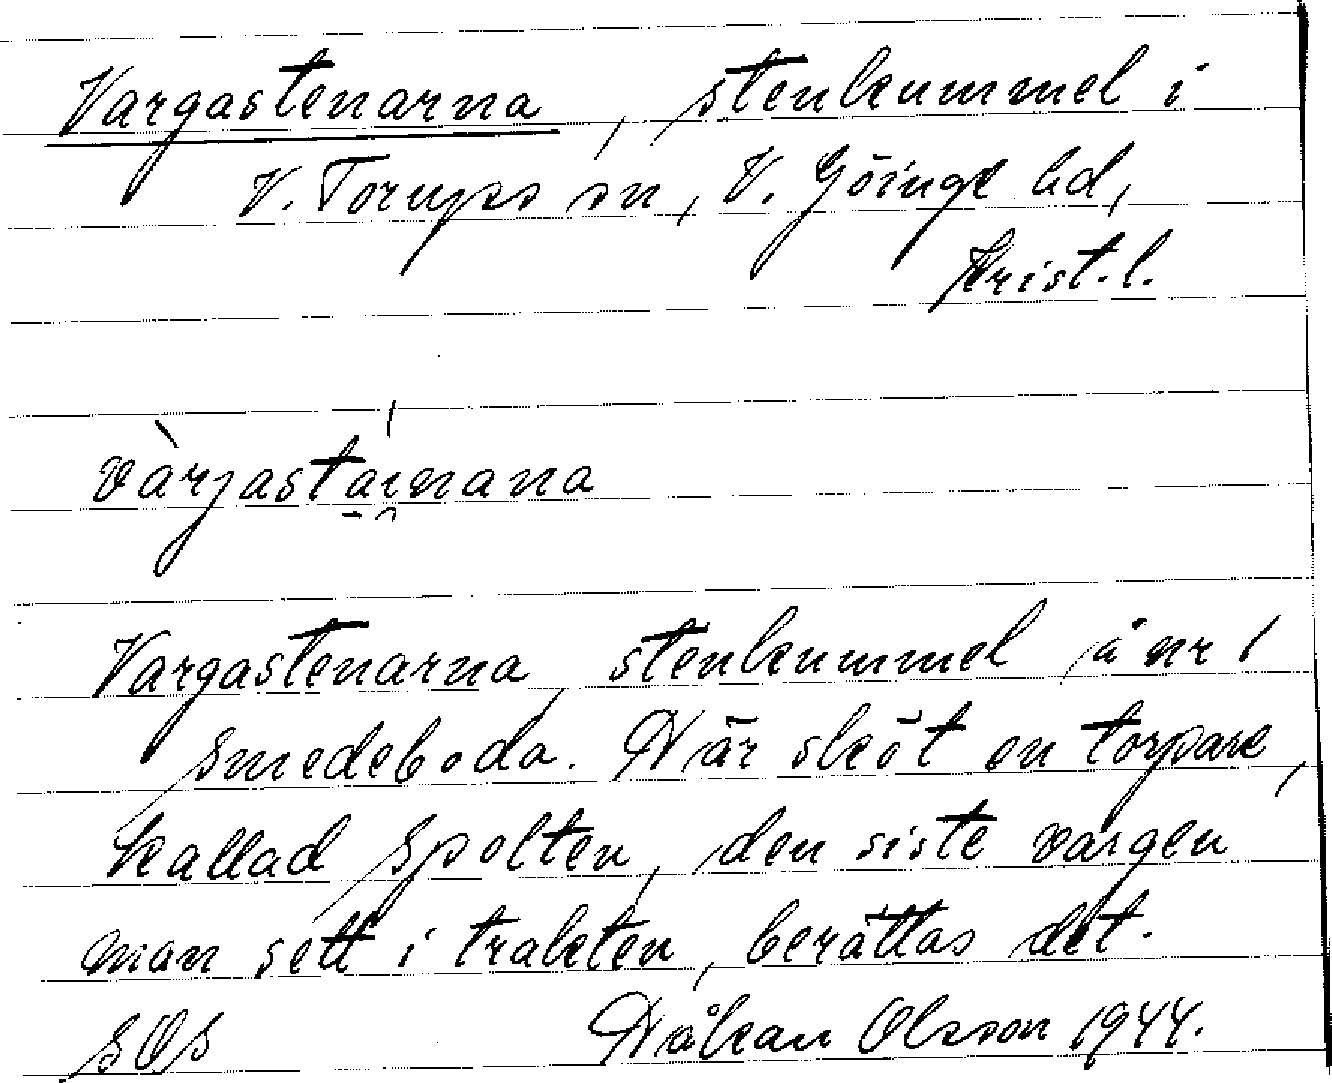 Vargastenarna, stenkummel i
V. Torups sn, V. Göinge hd,
Krist. l.
vàrjastáinana
Vargastenarna, stenkummel å nr 1
Smedeboda. Här sköt en torpare,
kallad Spolten, den siste vargen
man sett i trakten, berättas det.
SOS Håkan Olsson 1944.